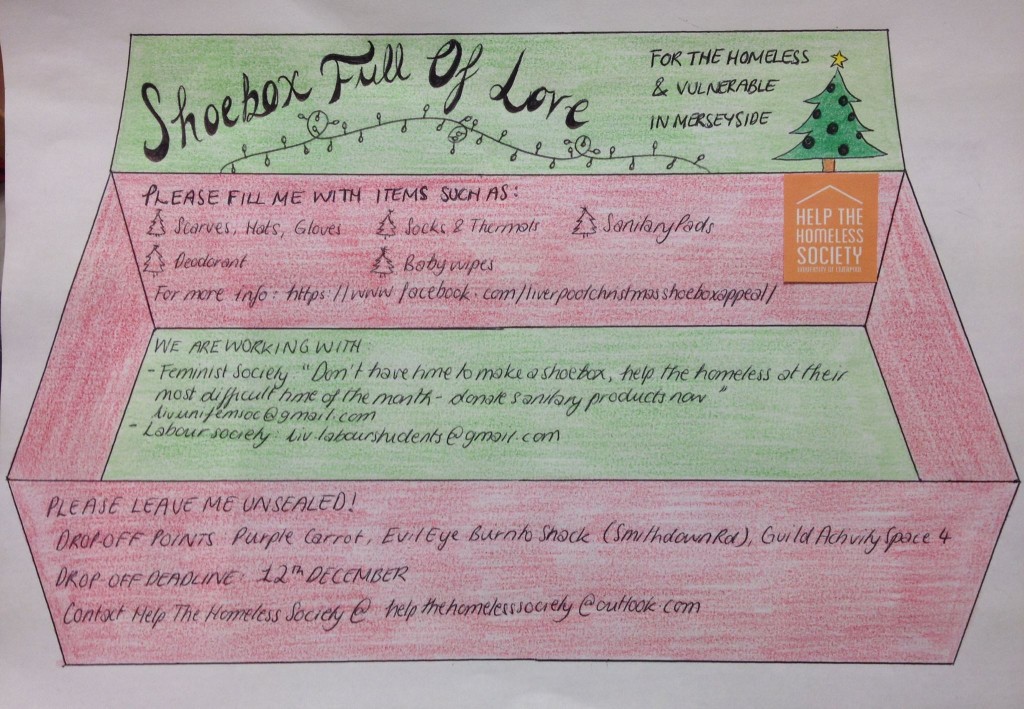 Shoebox Full Of Love
FOR THE HOMELESS
& VULNERABLE
IN MERSEYSIDE
PLEASE FILL ME WITH ITEMS SUCH AS:
Scarves, Hats, Gloves
Socks & Thermals
Sanitary Pads
Deodorant
Baby wipes
For more info: https://www.facebook.com/liverpoolchristmasshoeboxappeal/
HELP THE
HOMELESS
SOCIETY
UNIVERSITY OF LIVERPOOL
WE ARE WORKING WITH:
- Feminist Society: "Don't have time to make a shoebox, help the homeless at their
most difficult time of the month - donate sanitary products now"
livunifemsoc@gmail.com
- Labour society: liv.labourstudents@gmail.com
PLEASE LEAVE ME UNSEALED!
DROP-OFF POINTS Purple Carrot, Evil Eye Burrito Shack (Smithdown Rd), Guild Activity Space 4
DROP-OFF DEADLINE: 12TH DECEMBER
Contact Help The Homeless Society @ helpthehomelesssociety@outlook.com